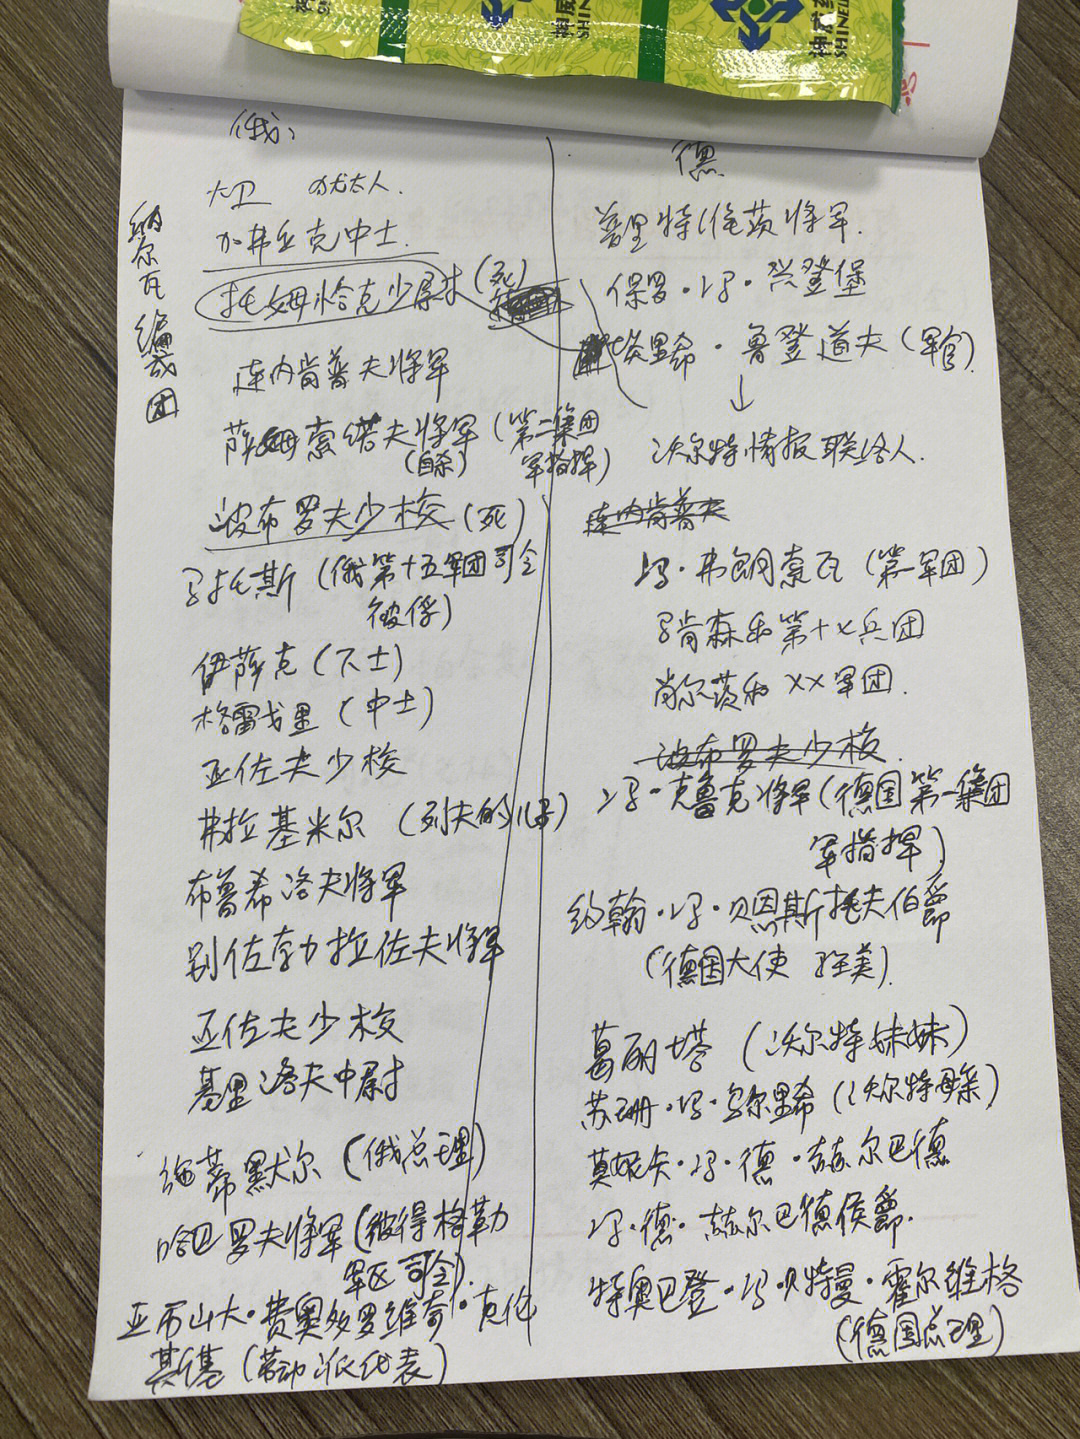 神威药
SHINE
(俄)
纳尔瓦编成团
大卫 犹太人.
加弗丘克中士.
托姆恰克少尉 (死)
连内肯普夫将军
薛姆索诺夫将军 (第二集团
(自杀) 军指挥)
波布罗夫少校 (死)
马托斯 (俄第十五军团司令
被俘)
伊萨克 (下士)
格雷戈里 (中士)
亚佐夫少校
弗拉基米尔 (列夫的儿子)
布鲁希洛夫将军
别佐勃拉佐夫将军
亚佐夫少校
基里洛夫中尉
施蒂默尔 (俄总理)
哈巴罗夫将军 (彼得格勒
军区司令).
亚历山大·费奥多罗维奇·克伦
斯基 (劳动派代表)
德
普里特维茨将军.
保罗·冯·兴登堡
埃里希·鲁登道夫 (军官)
↓
沃尔特情报联络人.
连内肯普夫
冯·弗朗索瓦 (第一军团)
马肯森和第十七兵团
肖尔茨和XX军团.
波布罗夫少校.
冯·克鲁克将军 (德国第一集团
军指挥)
约翰·冯·贝恩斯托夫伯爵
(德国大使 驻美).
葛丽塔 (沃尔特妹妹)
苏珊·冯·乌尔里希 (沃尔特母亲)
莫妮卡·冯·德·赫尔巴德
冯·德·赫尔巴德侯爵.
特奥巴登·冯·贝特曼·霍尔维格
(德国总理)